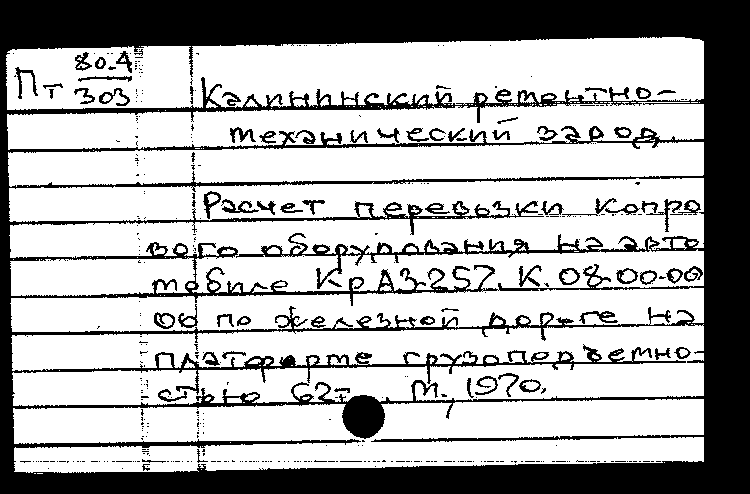 Пт 80.4
303
Калининский ремонтно-
механический завод.
Расчет перевозки копро
вого оборудования на авто
мобиле КрАЗ-257. К.08-00.00
00 по железной дороге на
платформе грузоподъемно-
стью 62т. М., 1970.